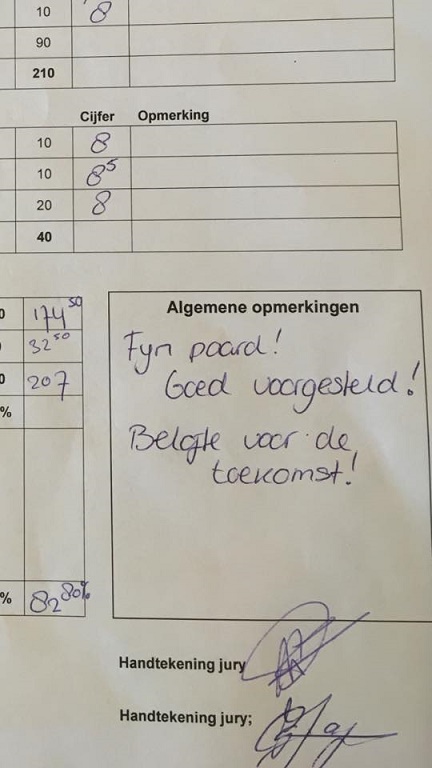 10 8
90
210
Cijfer Opmerking
10 8
10 8⁵
20 8
40
0 174⁵⁰
32⁵⁰
0 207
%
% 82⁸⁰%
Algemene opmerkingen
Fyn paard!
Goed voorgesteld!
Belofte voor de
toekomst!
Handtekening jury
Handtekening jury;